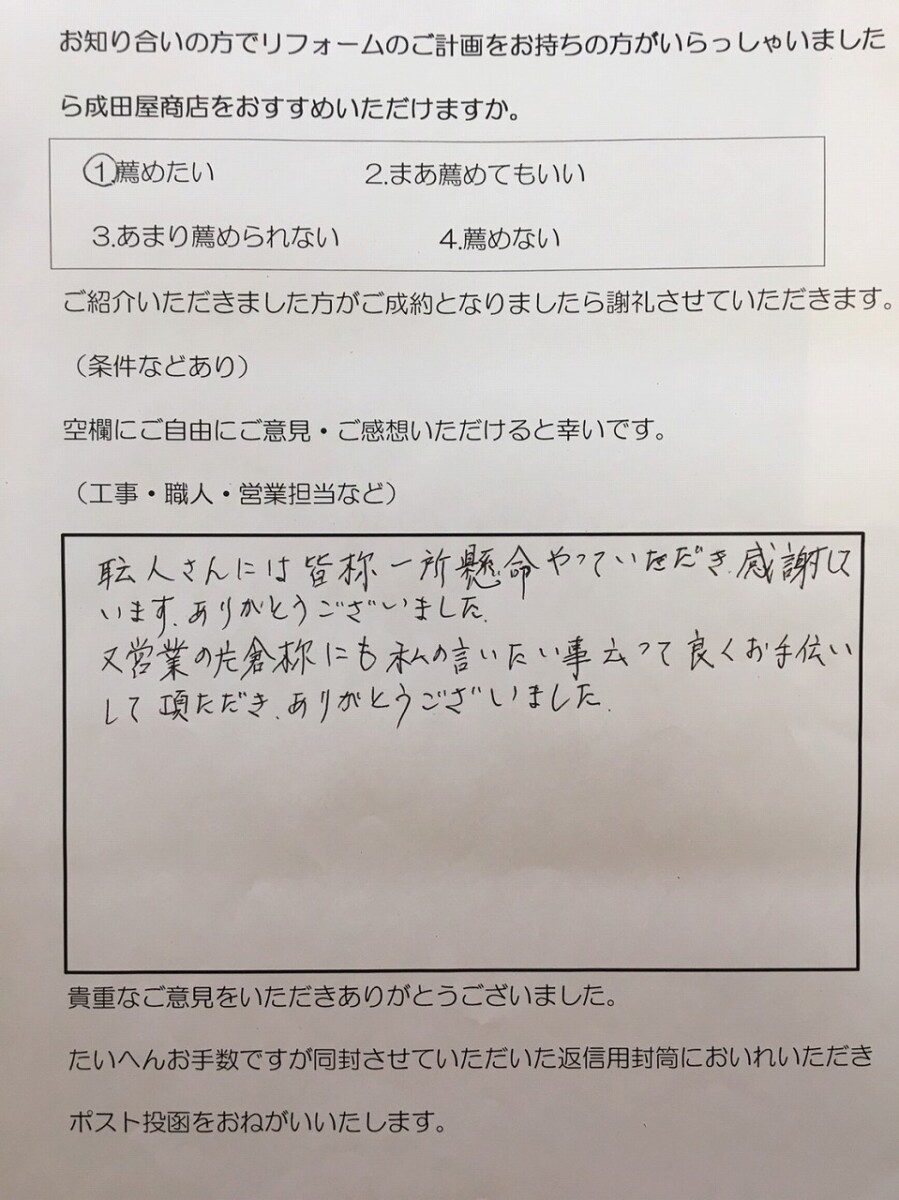 お知り合いの方でリフォームのご計画をお持ちの方がいらっしゃいました
ら成田屋商店をおすすめいただけますか。
1.薦めたい 2.まあ薦めてもいい
3.あまり薦められない 4.薦めない
ご紹介いただきました方がご成約となりましたら謝礼させていただきます。
（条件などあり）
空欄にご自由にご意見・ご感想いただけると幸いです。
（工事・職人・営業担当など）
耺人さんには皆称一所懸命やっていただき、感謝して
います、ありがとうございました。
又営業の片倉称にも私の言いたい事云って良くお手伝い
して頂ただき、ありがとうございました。
貴重なご意見をいただきありがとうございました。
たいへんお手数ですが同封させていただいた返信用封筒においれいただき
ポスト投函をおねがいいたします。